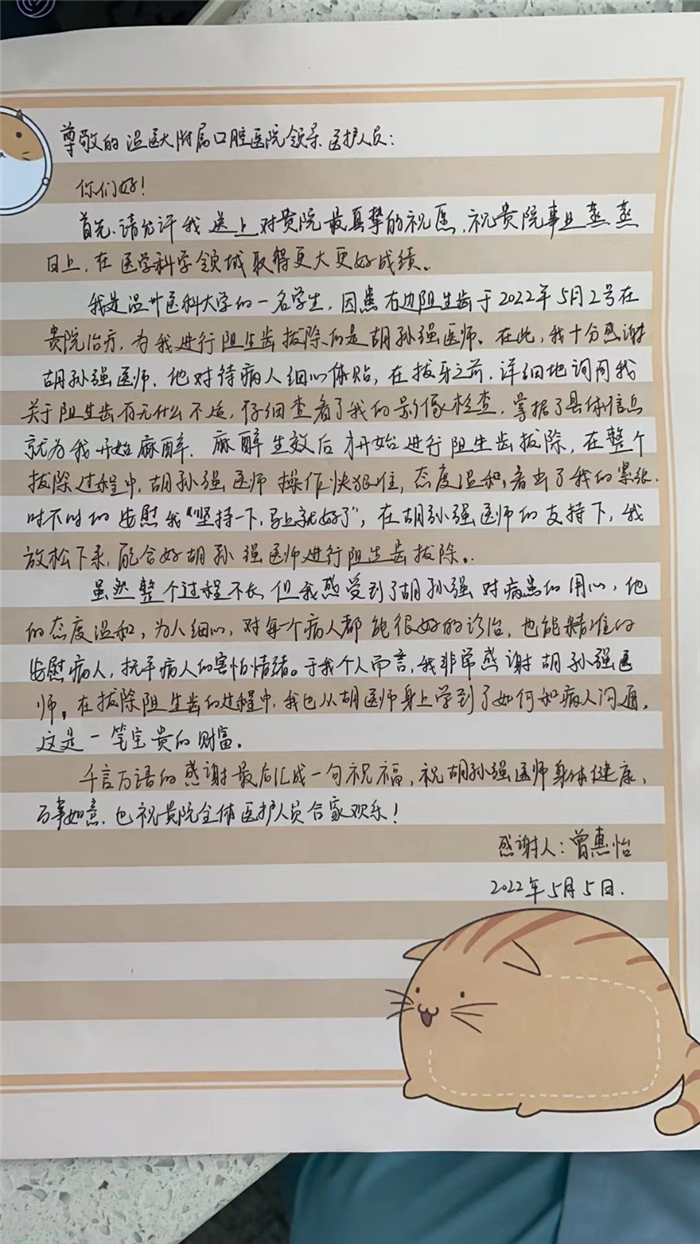 尊敬的温医大附属口腔医院领导、医护人员：
你们好！
首先，请允许我送上对贵院最真挚的祝愿，祝贵院事业蒸蒸
日上，在医学科学领域取得更大更好成绩。
我是温州医科大学的一名学生，因患右边阻生齿于2022年5月2号在
贵院治疗，为我进行阻生齿拔除的是胡孙强医师。在此，我十分感谢
胡孙强医师，他对待病人细心体贴，在拔牙之前，详细地询问我
关于阻生齿有无什么不适，仔细查看了我的影像检查，掌握了具体信息
就为我开始麻醉，麻醉生效后才开始进行阻生齿拔除，在整个
拔除过程中，胡孙强医师操作快狠住，态度温和，看出了我的紧张，
时不时的安慰我“坚持一下，马上就好了”，在胡孙强医师的支持下，我
放松下来，配合好胡孙强医师进行阻生齿拔除。
虽然整个过程不长，但我感受到了胡孙强对病患的用心，他
的态度温和，为人细心，对每个病人都能很好的诊治，也能精准的
安慰病人，抚平病人的害怕情绪。于我个人而言，我非常感谢胡孙强医
师。在拔除阻生齿的过程中，我也从胡医师身上学到了如何和病人沟通，
这是一笔宝贵的财富。
千言万语的感谢最后汇成一句祝福，祝胡孙强医师身体健康，
万事如意，也祝贵院全体医护人员合家欢乐！
感谢人：曾惠怡
2022年5月5日．